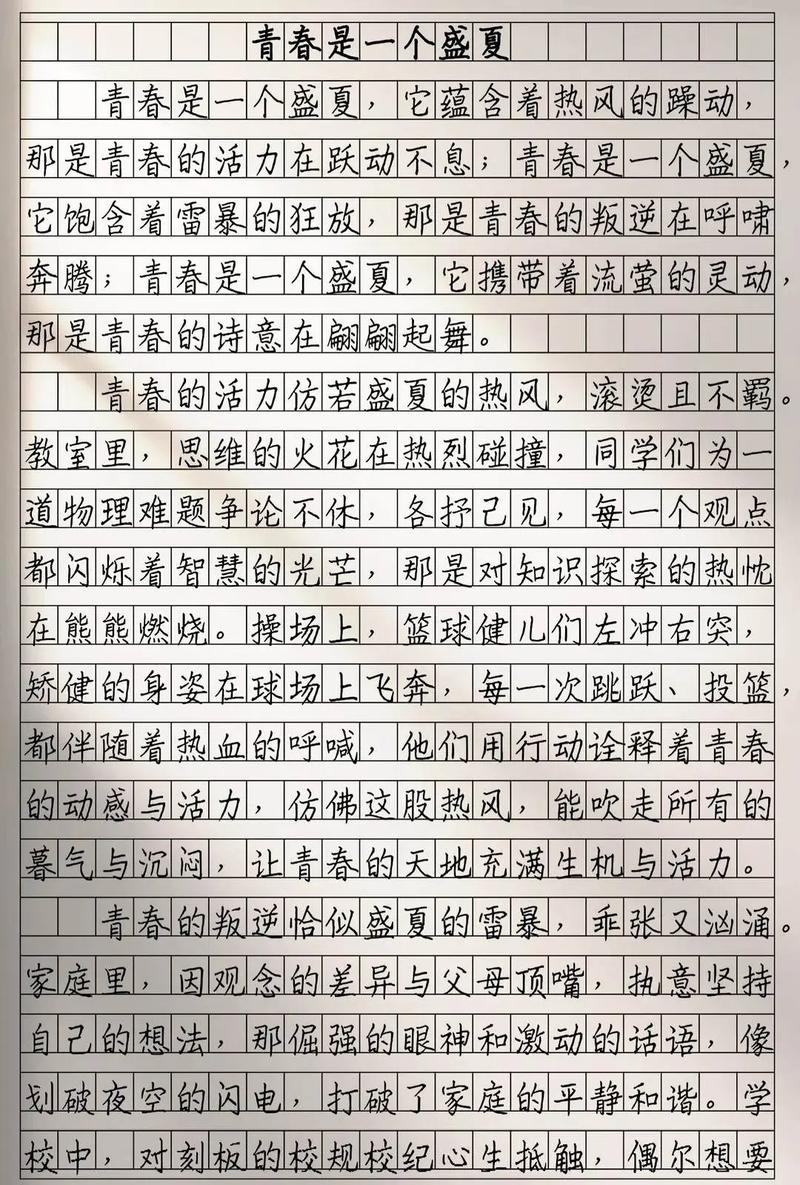 青春是一个盛夏
青春是一个盛夏，它蕴含着热风的躁动，
那是青春的活力在跃动不息；青春是一个盛夏，
它饱含着雷暴的狂放，那是青春的叛逆在呼啸
奔腾；青春是一个盛夏，它携带着流萤的灵动，
那是青春的诗意在翩翩起舞。
青春的活力仿若盛夏的热风，滚烫且不羁。
教室里，思维的火花在热烈碰撞，同学们为一
道物理难题争论不休，各抒己见，每一个观点
都闪烁着智慧的光芒，那是对知识探索的热忱
在熊熊燃烧。操场上，篮球健儿们左冲右突，
矫健的身姿在球场上飞奔，每一次跳跃、投篮，
都伴随着热血的呼喊，他们用行动诠释着青春
的动感与活力，仿佛这股热风，能吹走所有的
暮气与沉闷，让青春的天地充满生机与活力。
青春的叛逆恰似盛夏的雷暴，乖张又汹涌。
家庭里，因观念的差异与父母顶嘴，执意坚持
自己的想法，那倔强的眼神和激动的话语，像
划破夜空的闪电，打破了家庭的平静和谐。学
校中，对刻板的校规校纪心生抵触，偶尔想要